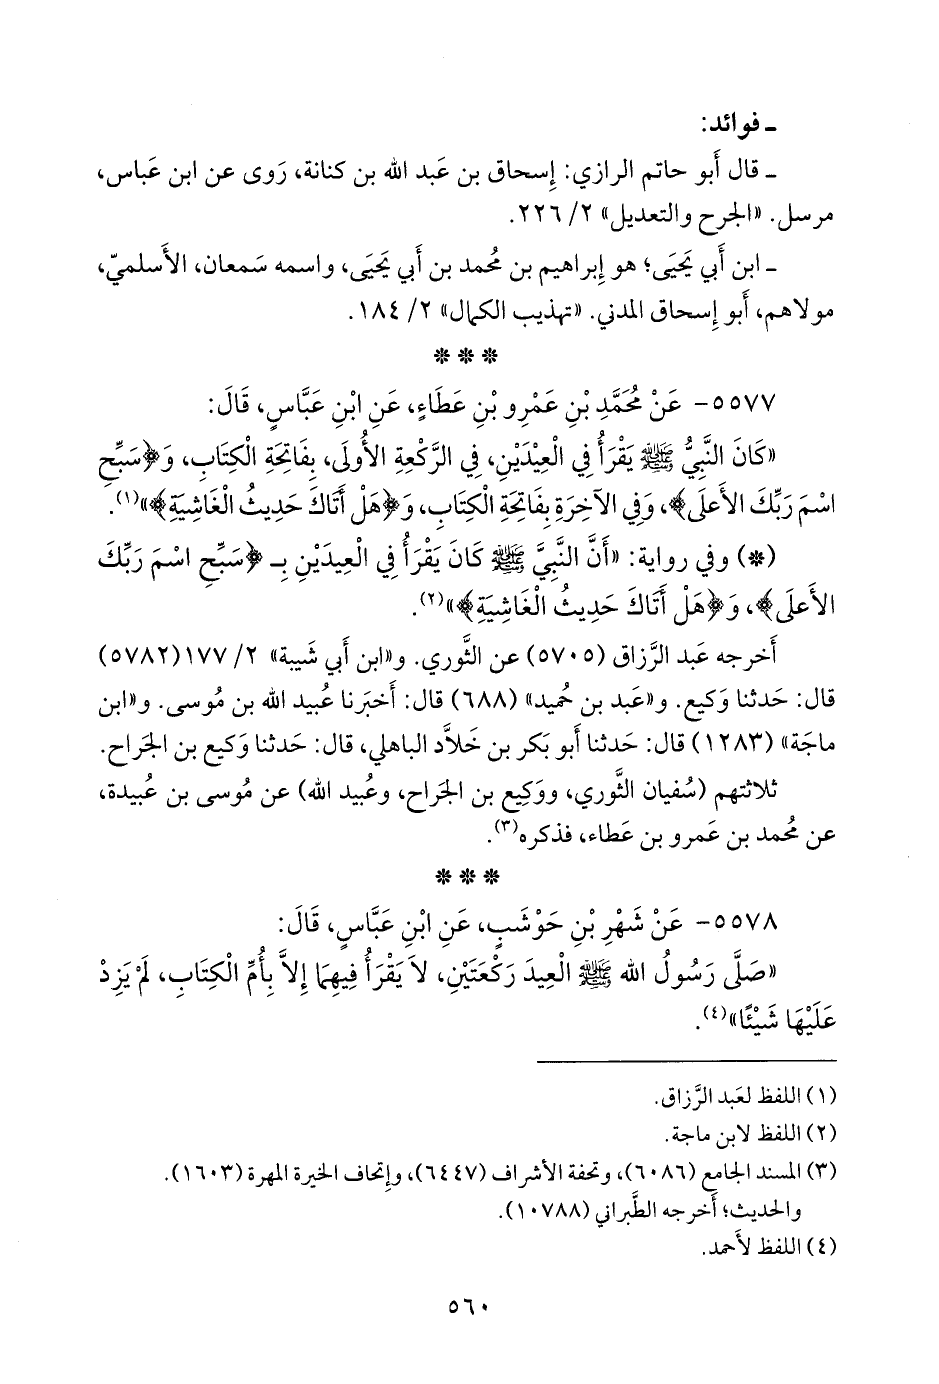 ـ فوائد:
ـ قال أَبو حاتم الرازي: إِسحاق بن عَبد الله بن كنانة، رَوى عن ابن عَباس،
مرسل. «الجرح والتعديل» ٢/ ٢٢٦.
ـ ابن أَبي يَحيَى؛ هو إِبراهيم بن مُحمد بن أَبي يَحيَى، واسمه سَمعان، الأَسلميّ،
مولاهم، أَبو إِسحاق المدني. «تهذيب الكمال» ٢/ ١٨٤.
* * *
٥٥٧٧- عَنْ مُحَمَّدِ بْنِ عَمْرِو بْنِ عَطَاءٍ، عَنِ ابْنِ عَبَّاسٍ، قَالَ:
«كَانَ النَّبِيُّ ﷺ يَقْرَأُ فِي الْعِيدَيْنِ، فِي الرَّكْعَةِ الأُولَى، بِفَاتِحَةِ الْكِتَابِ، وَ﴿سَبِّحِ
اسْمَ رَبِّكَ الأَعلَى﴾، وَفِي الآخِرَةِ بِفَاتِحَةِ الْكِتَابِ، وَ﴿هَلْ أَتَاكَ حَدِيثُ الْغَاشِيَةِ﴾»(١).
(*) وفي رواية: «أَنَّ النَّبِيَّ ﷺ كَانَ يَقْرَأُ فِي الْعِيدَيْنِ بِـ ﴿سَبِّحِ اسْمَ رَبِّكَ
الأَعلَى﴾، وَ﴿هَلْ أَتَاكَ حَدِيثُ الْغَاشِيَةِ﴾»(٢).
أَخرجه عَبد الرَّزاق (٥٧٠٥) عن الثَّوري. و«ابن أَبي شَيبة» ٢/ ١٧٧(٥٧٨٢)
قال: حَدثنا وَكيع. و«عَبد بن حُميد» (٦٨٨) قال: أَخبَرنا عُبيد الله بن مُوسى. و«ابن
ماجَة» (١٢٨٣) قال: حَدثنا أَبو بَكر بن خَلاَّد الباهلي، قال: حَدثنا وَكيع بن الجَراح.
ثلاثتهم (سُفيان الثَّوري، ووَكِيع بن الجَراح، وعُبيد الله) عن مُوسى بن عُبيدة،
عن مُحمد بن عَمرو بن عَطاء، فذكره(٣).
* * *
٥٥٧٨- عَنْ شَهْرِ بْنِ حَوْشَبٍ، عَنِ ابْنِ عَبَّاسٍ، قَالَ:
«صَلَّى رَسُولُ الله ﷺ الْعِيدَ رَكْعَتَيْنِ، لاَ يَقْرَأُ فِيهِمَا إِلاَّ بِأُمِّ الْكِتَابِ، لَمْ يَزِدْ
عَلَيْهَا شَيْئًا»(٤).
(١) اللفظ لعَبد الرَّزاق.
(٢) اللفظ لابن ماجة.
(٣) المسند الجامع (٦٠٨٦)، وتحفة الأشراف (٦٤٤٧)، وإِتحاف الخيرة المهرة (١٦٠٣).
والحديث؛ أَخرجه الطَّبراني (١٠٧٨٨).
(٤) اللفظ لأَحمد.
٥٦٠